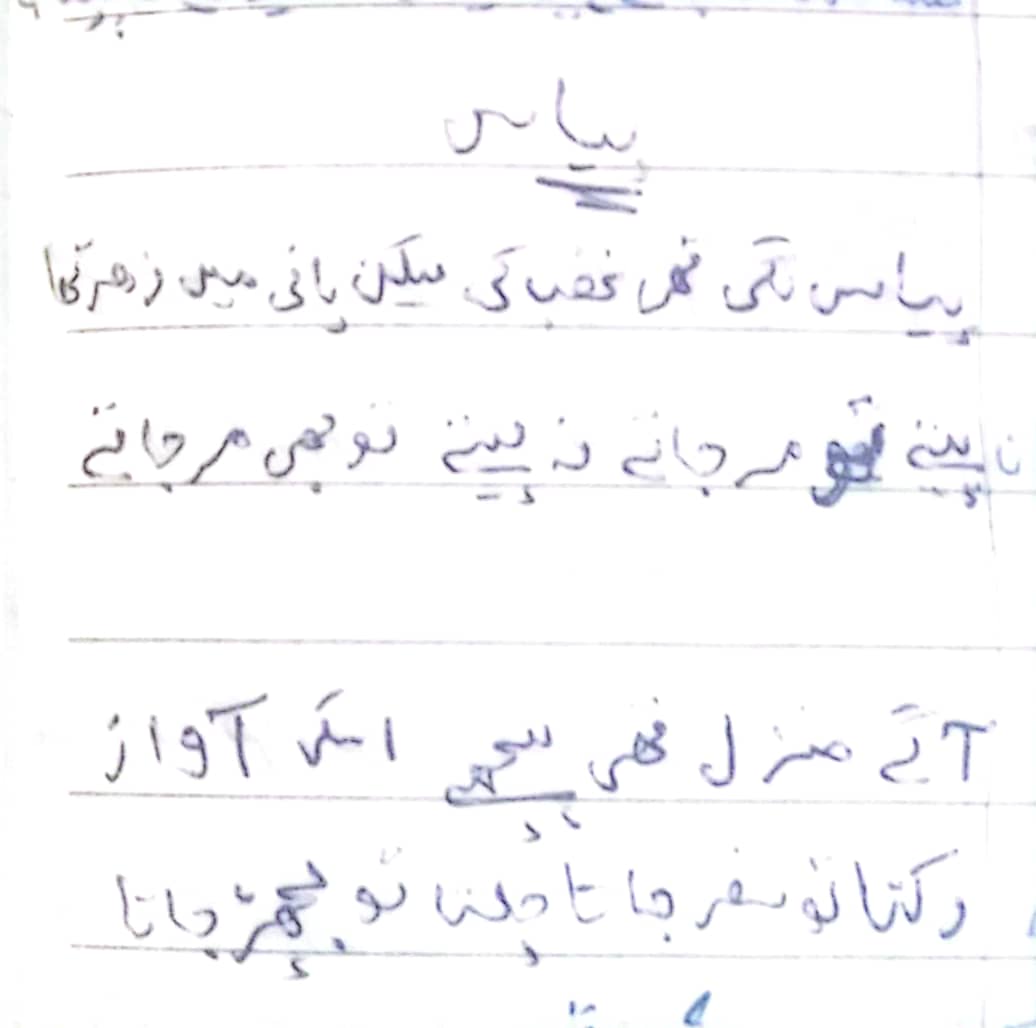 پیاس
پیاس لگی تھی غضب کی لیکن پانی میں زھر تھا
پیتے تو مر جاتے نہ پیتے تو بھی مر جاتے
آگے منزل تھی پیچھے اسکی آواز
رکتا تو سفر جاتا چلتا تو بچھڑ جاتا